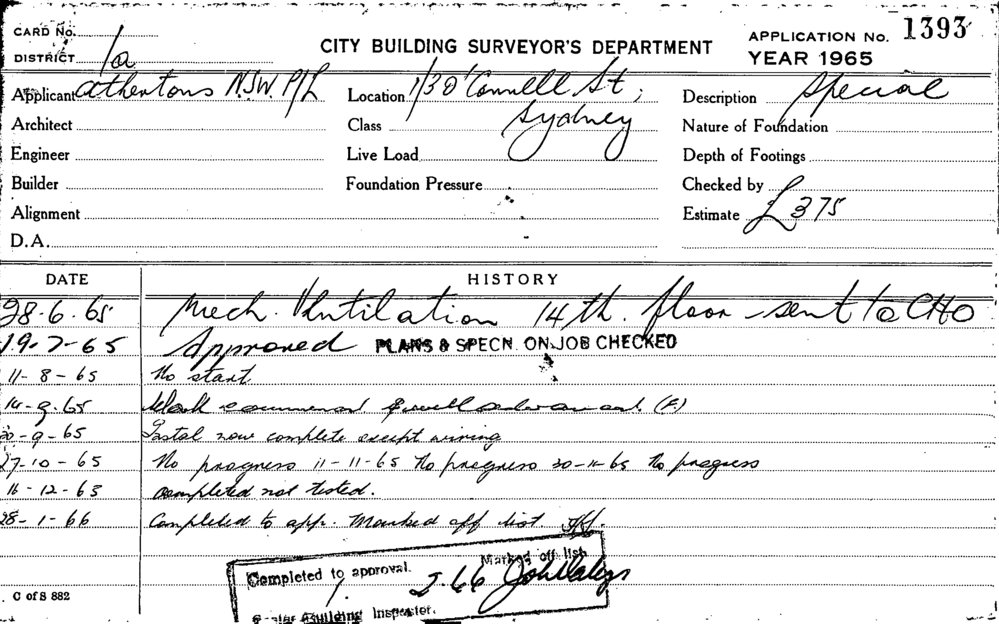 CARD No.
CITY BUILDING SURVEYOR'S DEPARTMENT
APPLICATION No. 1393
DISTRICT 1a
YEAR 1965
Applicant Athertons N.S.W. P/L
Location 1/3 O'Connell St, Sydney
Description Special
Architect
Class
Nature of Foundation
Engineer
Live Load
Depth of Footings
Builder
Foundation Pressure
Checked by
Alignment
Estimate £375
D.A.
DATE HISTORY
28.6.65 Mech. Ventilation 14th. floor - sent to CHO
19-7-65 Approved PLANS & SPECN. ON JOB CHECKED
11-8-65 No start
14-9.65 Work commenced & well advanced. (F.)
20-9-65 Instal now complete except wiring
27-10-65 No progress 11-11-65 No progress 30-11-65 No progress
16-12-65 Completed not tested.
28-1-66 Completed to app. Marked off list
Completed to approval. Marked off list
1. 2.66
Building Inspector.
C of S 882